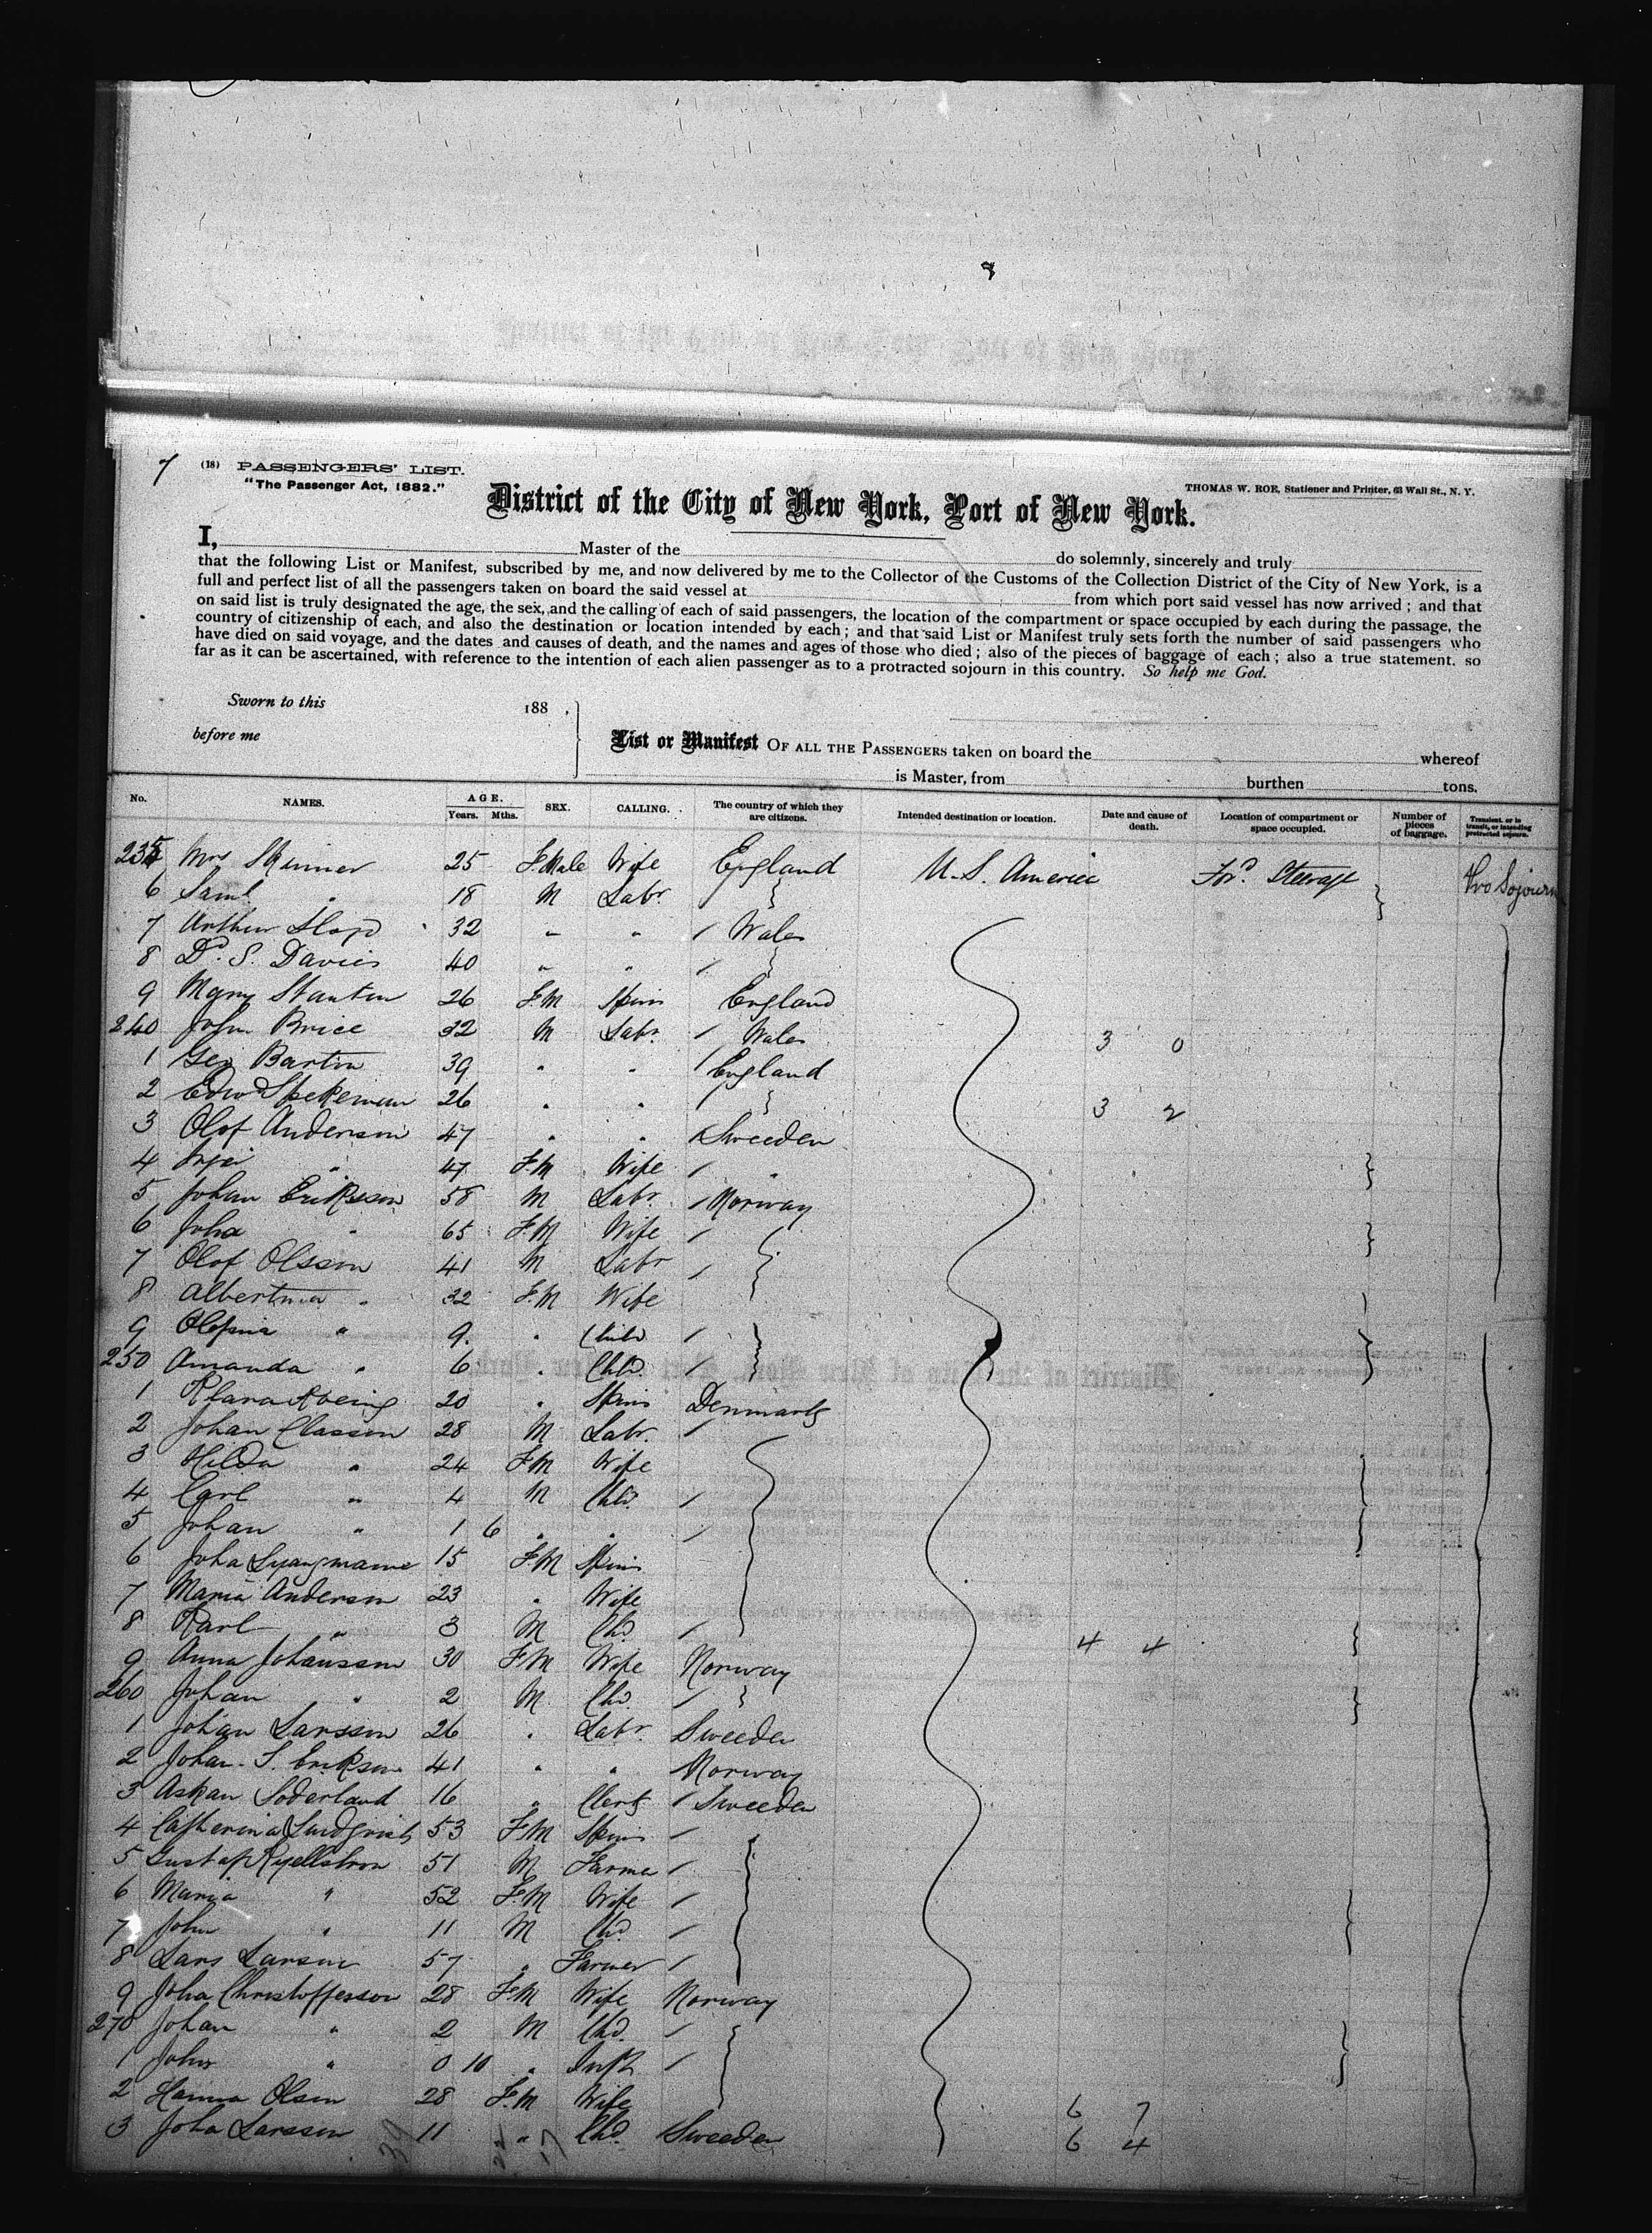 7
(18) PASSENGERS' LIST.
"The Passenger Act, 1882."
THOMAS W. ROE, Stationer and Printer, 63 Wall St., N. Y.
District of the City of New York, Port of New York.
I, Master of the do solemnly, sincerely and truly
that the following List or Manifest, subscribed by me, and now delivered by me to the Collector of the Customs of the Collection District of the City of New York, is a
full and perfect list of all the passengers taken on board the said vessel at from which port said vessel has now arrived; and that
on said list is truly designated the age, the sex, and the calling of each of said passengers, the location of the compartment or space occupied by each during the passage, the
country of citizenship of each, and also the destination or location intended by each; and that said List or Manifest truly sets forth the number of said passengers who
have died on said voyage, and the dates and causes of death, and the names and ages of those who died; also of the pieces of baggage of each; also a true statement, so
far as it can be ascertained, with reference to the intention of each alien passenger as to a protracted sojourn in this country. So help me God.
Sworn to this 188 .
before me
List or Manifest OF ALL THE PASSENGERS taken on board the whereof
is Master, from burthen tons.
No. NAMES. AGE. Years. Mths. SEX. CALLING. The country of which they are citizens. Intended destination or location. Date and cause of death. Location of compartment or space occupied. Number of pieces of baggage. Transient, or in transit, or intending protracted sojourn.
235 Mrs Skinner 25 F.Male Wife England U.S. America For'd Steerage Pro Sojourn
6 Saml " 18 M Labr
7 Arthur Lloyd 32 " " / Wales
8 Dd. S. Davies 40 " " /
9 Mary Stanton 26 F.M Spins England
240 John Brice 32 M Labr. / Wales 3 0
1 Geo Barton 39 " " / England
2 Edwd 26 " " / 3 2
3 Olof Anderson 47 " " / Sweeden
4 " 47 F.M Wife / "
5 Johan Eriksson 58 M Labr. / Norway
6 Joha " 65 F.M Wife /
7 Olof Olsson 41 M Labr /
8 Albertina " 32 F.M Wife
9 " 9. " Child /
250 Amanda " 6 " Chld. /
1 Klara 20 " Spins Denmark
2 Johan Classon 28 M Labr. /
3 Hilda " 24 F.M Wife
4 Carl " 4 M Chld. /
5 Johan " 1 6 " " /
6 Joha 15 F.M Spins
7 Maria Anderson 23 " Wife
8 Karl " 3 M Chd /
4 4
9 Anna Johansson 30 F.M Wife Norway
260 Johan " 2 M Chd. /
1 Johan Larsson 26 " Labr. Sweeden
2 Johan. S. Erikson 41 " " Norway
3 Askan Soderland 16 " Clerk / Sweeden
4 Catherina 53 F.M Spins /
5 Gustaf 51 M Farmer /
6 Maria " 52 F.M Wife /
7 John " 11 M Chd. /
8 Lars Larson 57 " Farmer /
9 Joha Christofferson 28 F.M Wife Norway
270 Johan " 2 M Chd. /
1 John " 0 10 " Inft /
2 Hanna Olsen 28 F.M Wife 6 7
3 Joha Larsson 11 " Chd. Sweeden 6 4